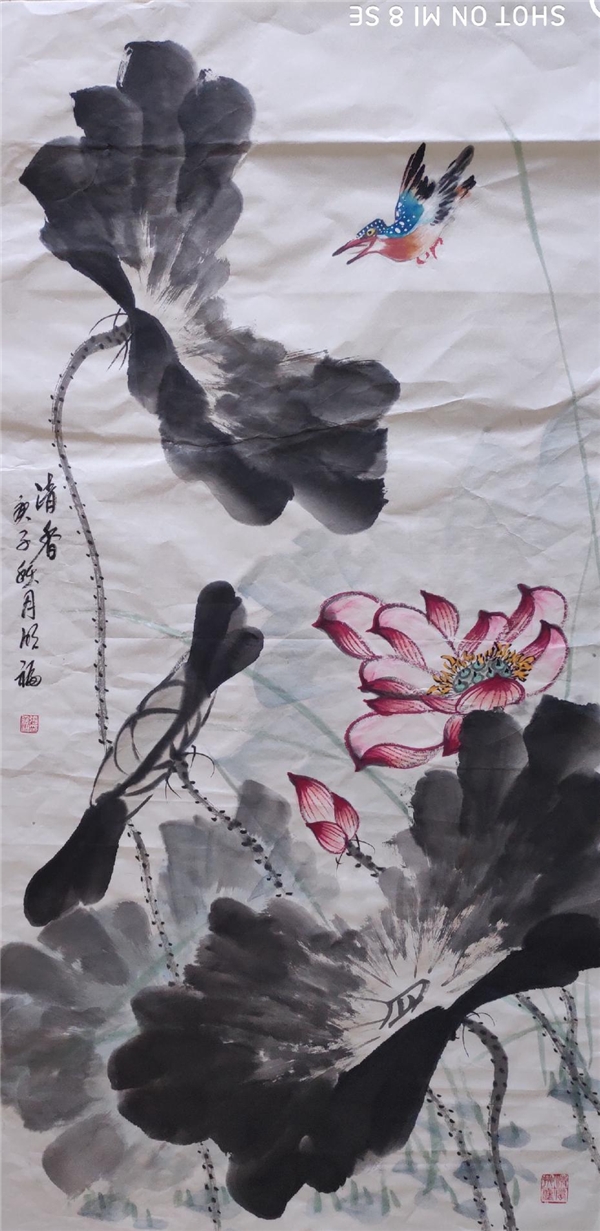 SHOT ON MI 8 SE
清香
庚子秋月順福